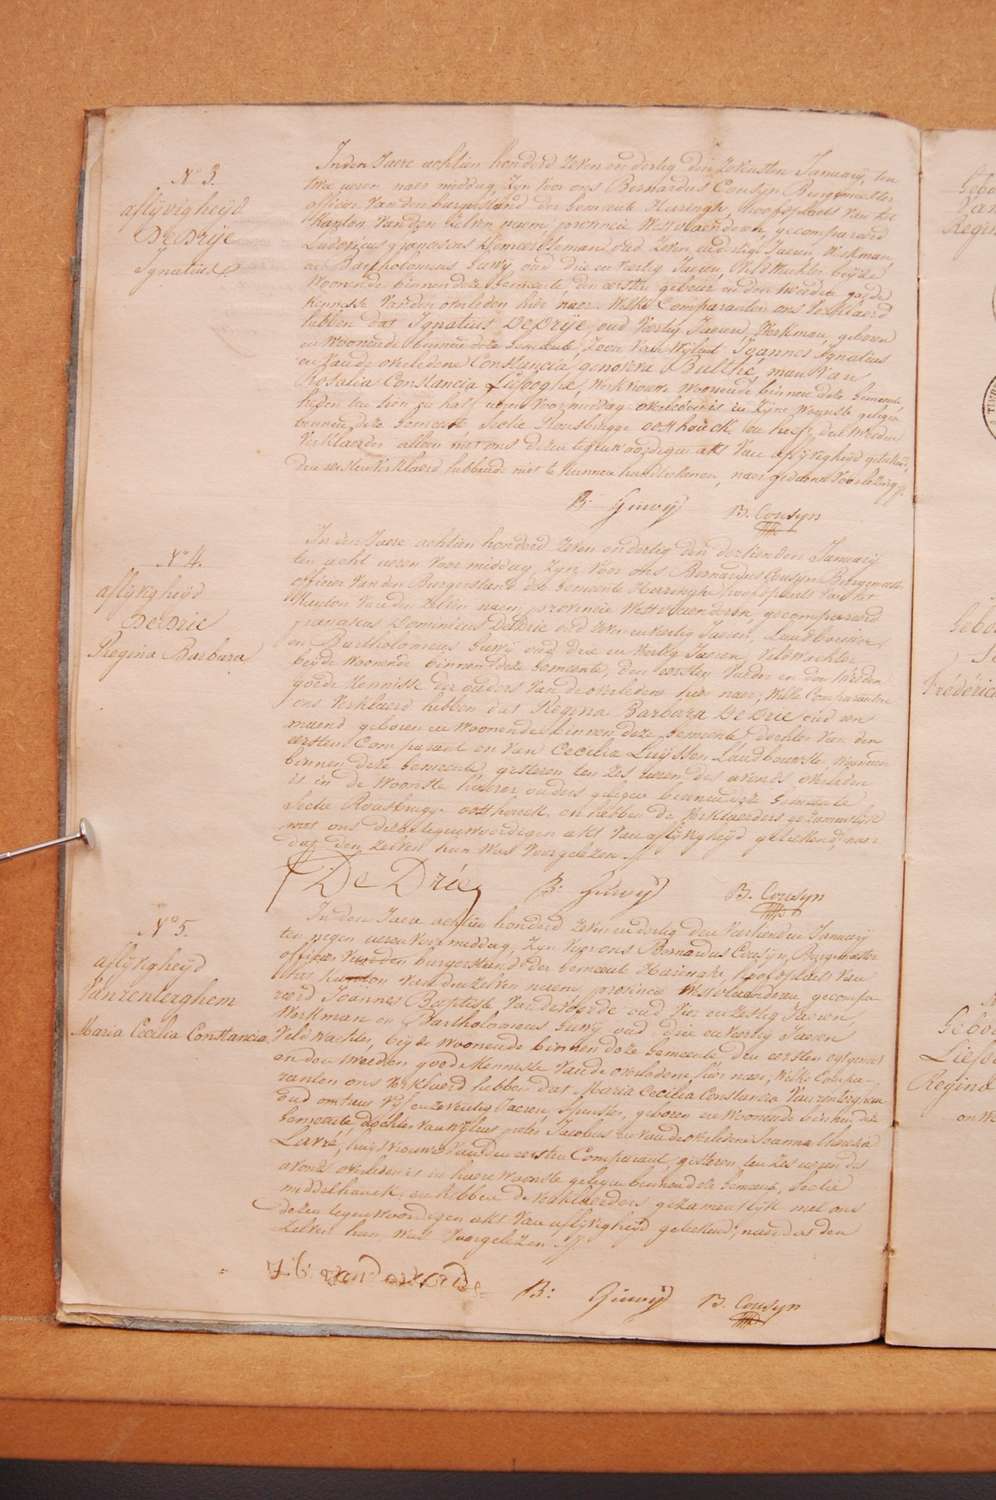 N° 3.
aflijvigheijd
DeDrije
Ignatius
In den Jaere achtien honderd zeven en dertig den zesentien January, ten
twee uren naer middag, zyn voor ons Bernardus Cousyn Burgemeester
officier van den burgerstand der Gemeente Haringh, hoofdplaets van het
Kanton van den zelven naem, provincie Westvlaenderen, gecompareerd
Ludovicus Jgnansens oud zeven Jaeren, Werkman,
en Bartholomeus Guwij oud drie en veertig Jaeren, Veldwachter beijde
woonende binnen deze Gemeente, den eersten gebuer en den tweeden goede
kennisse van den overleden hier naer. Welke Comparanten ons verklaerd
hebben dat Ignatius DeDrije oud veertig Jaeren, Werkman, geboren
en woonende binnen deze Gemeente, Zoon van wylent Joannes Ignatius
en van de overledene Constancia genoveva Bulthé, man van
Rosalia Constancia Lusooghe, Werkvrouwe woonende binnen deze Gemeente
heden ten tien en half uren voormiddag overleden is in zyne Woonste gelegen
binnen deze Gemeente Sectie Rousbrugge oosthouck en heeft den tweeden
Verklaerder alleen met ons dezen tegenwoordigen akt van aflijvigheijd geteekend,
den eersten verklaerd hebbende niet te kunnen handteekenen, naer gedaene voorlezing
B: Guwij B. Cousyn
N° 4.
aflijvigheijd
DeDrie
Regina Barbara
In den Jaere achtien honderd zeven en dertig den dertienden January
ten acht uren voor middag, zyn voor ons Bernardus Cousyn Burgemeester
officier van den Burgerstand der Gemeente Haringh, hoofdplaets van het
Kanton van den zelven naem, provincie Westvlaenderen, gecompareerd
Dominicus DeDrie oud zeven en veertig Jaeren, Landbouwer
en Bartholomeus Guwij oud drie en veertig Jaeren, Veldwachter
beijde woonende binnen deze Gemeente, den eersten Vader en den tweeden
goede kennisse der ouders van de overledene hier naer, Welke Comparanten
ons verklaerd hebben dat Regina Barbara DeDrie oud een
maend geboren en woonende binnen deze Gemeente, dochter van den
eersten Comparant en van Cecilia Luyssen Landbouwster, woonende
binnen deze Gemeente, gisteren ten zes uren des avonds overleden
is in de Woonste haerer ouders gelegen binnen deze Gemeente
Sectie Rousbrugge oosthouck, en hebben de verklaerders gezamentlijk
met ons dezen tegenwoordigen akt van aflijvigheijd geteekend, naer
dat den zelven hun was voorgelezen
DeDrie B: Guwij B. Cousyn
N° 5.
aflijvigheijd
Vanrenterghem
Maria Cecilia Constancia
In den Jaere achtien honderd zeven en dertig den veertienden January
ten negen uren voor middag, zyn voor ons Bernardus Cousyn, Burgemeester
officier van den burgerstand der Gemeente Haringh, hoofdplaets van
het Kanton van den zelven naem, provincie Westvlaenderen, gecompa-
reerd Joannes Baptiste Vandevoorde oud vier en zestig Jaeren
Werkman en Bartholomeus Guwij oud drie en veertig Jaeren
Veldwachter, beijde woonende binnen deze Gemeente den eersten echtgenoot
en den tweeden goede kennisse van de overledene hier naer, Welke Compa-
ranten ons verklaerd hebben dat Maria Cecilia Constancia Vanrenterghem
oud omtrent vijf en zeventig Jaeren, Spinster, geboren en woonende binnen deze
Gemeente, dochter van wylent pieter Jacobus en van de overledene Joanna
huijsvrouwe van den eersten Comparant, gisteren ten zes uren des
avonds overleden is in haere woonste gelegen binnen deze Gemeente, Sectie
middelhouck, en hebben de verklaerders gezamentlijk met ons
dezen tegenwoordigen akt van aflijvigheijd geteekend, naer dat den
zelven hun was voorgelezen
B: Guwij B. Cousyn
Gebo
Van
Regin
Gebo
Frédéric
Gebo
Liefo
Regino
en W